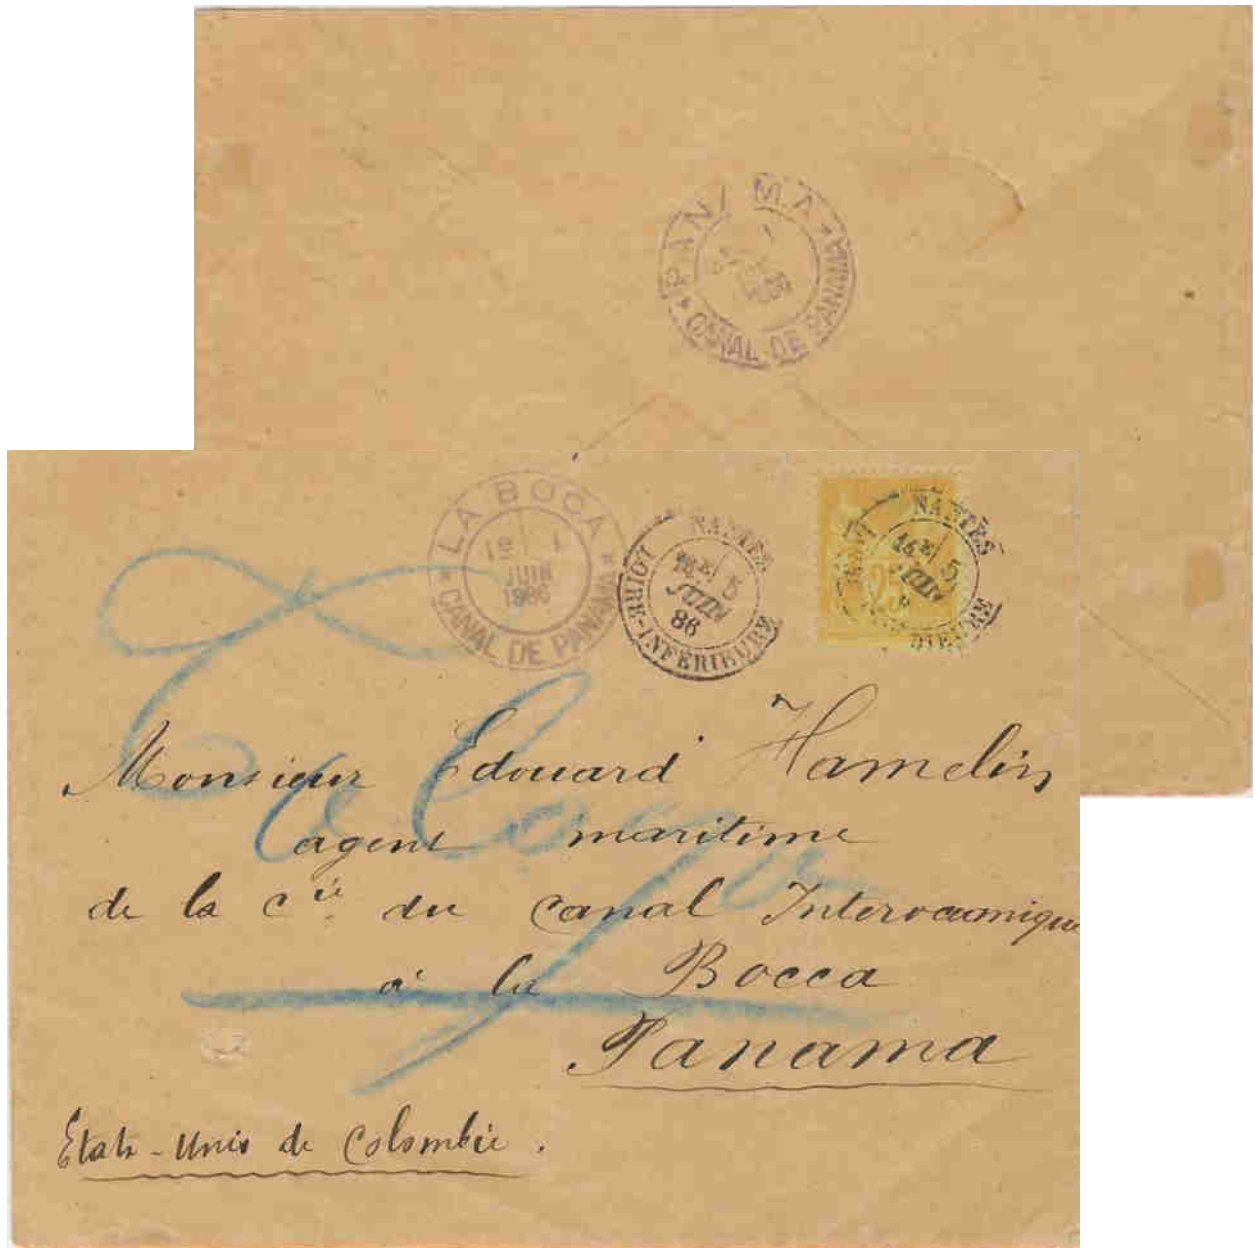 PANAMA
1886
CANAL DE PANAMA
LA BOCA
JUIN
1886
CANAL DE PANAMA
NANTES
5
JUIN
86
LOIRE-INFÉRIEURE
NANTES
5
JUIN
25
Monsieur Edouard Hamelin
agent maritime
de la Cie du Canal Interocéanique
à la Bocca
Panama
Etats-Unis de Colombie.